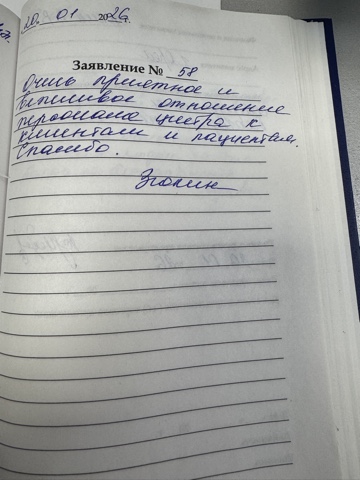 20. 01 2026г.
Заявление № 58
Очень приятное и
вежливое отношение
персонала центра к
клиентам и пациентам.
Спасибо.